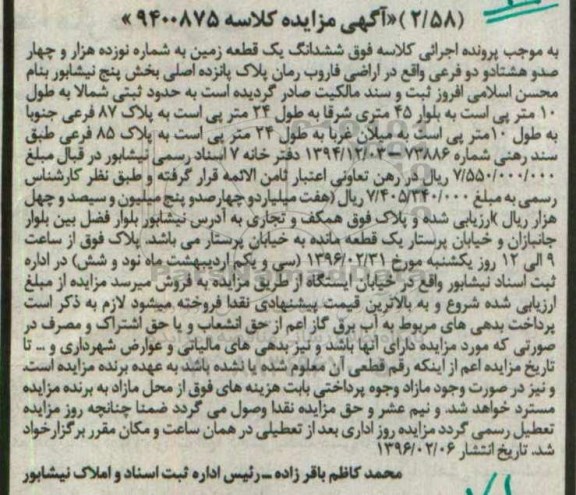 (۲/۵۸)«آگهی مزایده کلاسه ۹۴۰۰۸۷۵»
به موجب پرونده اجرائی کلاسه فوق ششدانگ یک قطعه زمین به شماره نوزده هزار و چهار
صدو هشتادو دو فرعی واقع در اراضی فاروب رمان پلاک پانزده اصلی بخش پنج نیشابور بنام
محسن اسلامی افروز ثبت و سند مالکیت صادر گردیده است به حدود ثبتی شمالا به طول
۱۰ متر پی است به بلوار ۴۵ متری شرقا به طول ۲۴ متر پی است به پلاک ۸۷ فرعی جنوبا
به طول ۱۰متر پی است به میلان غربا به طول ۲۴ متر پی است به پلاک ۸۵ فرعی طبق
سند رهنی شماره ۷۳۸۸۶-۱۳۹۴/۱۲/۰۳ دفتر خانه ۷ اسناد رسمی نیشابور در قبال مبلغ
۷/۵۵۰/۰۰۰/۰۰۰ ریال در رهن تعاونی اعتبار ثامن الائمه قرار گرفته و طبق نظر کارشناس
رسمی به مبلغ ۷/۴۰۵/۳۴۰/۰۰۰ ریال (هفت میلیاردو چهارصدو پنج میلیون و سیصد و چهل
هزار ریال )ارزیابی شده و پلاک فوق همکف و تجاری به آدرس نیشابور بلوار فضل بین بلوار
جانبازان و خیابان پرستار یک قطعه مانده به خیابان پرستار می باشد. پلاک فوق از ساعت
۹ الی ۱۲ روز یکشنبه مورخ ۱۳۹۶/۰۲/۳۱ (سی و یکم اردیبهشت ماه نود و شش) در اداره
ثبت اسناد نیشابور واقع در خیابان ایستگاه از طریق مزایده به فروش میرسد مزایده از مبلغ
ارزیابی شده شروع و به بالاترین قیمت پیشنهادی نقدا فروخته میشود لازم به ذکر است
پرداخت بدهی های مربوط به آب برق گاز اعم از حق انشعاب و یا حق اشتراک و مصرف در
صورتی که مورد مزایده دارای آنها باشد و نیز بدهی های مالیاتی و عوارض شهرداری و ... تا
تاریخ مزایده اعم از اینکه رقم قطعی آن معلوم شده یا نشده باشد به عهده برنده مزایده است.
و نیز در صورت وجود مازاد وجوه پرداختی بابت هزینه های فوق از محل مازاد به برنده مزایده
مسترد خواهد شد. و نیم عشر و حق مزایده نقدا وصول می گردد ضمنا چنانچه روز مزایده
تعطیل رسمی گردد مزایده روز اداری بعد از تعطیلی در همان ساعت و مکان مقرر برگزار خواد
شد. تاریخ انتشار ۱۳۹۶/۰۲/۰۶
محمد کاظم باقر زاده - رئیس اداره ثبت اسناد و املاک نیشابور